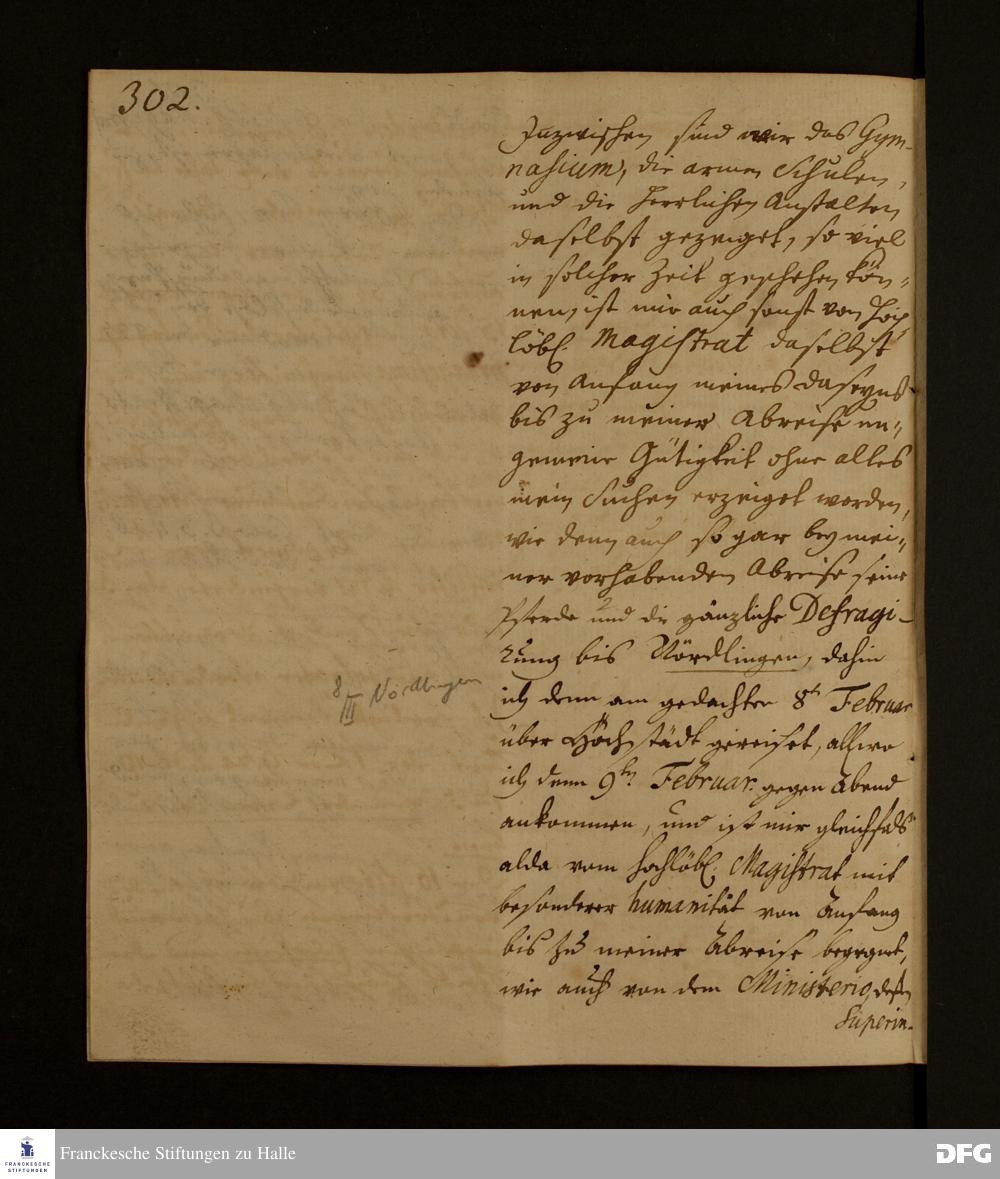 302.
Inzwischen sind wir das Gym-
nasium, die armen Schulen,
und die herrlichen Anstalten
daselbst gezeiget, so viel
in solcher Zeit geschehen kön-
nen, ist mir auch sonst von Hoch
löbl. Magistrat daselbst
von Anfang meines daseyns
bis zu meiner Abreise un-
gemeine Gütigkeit ohne alles
mein Suchen erzeiget worden,
wie denn auch so gar bey mei-
ner vorhabenden Abreise seine
Pferde und die gänzliche Defragi-
rung bis Nördlingen, dahin
8/II Nördlingen
ich denn am gedachten 8ten Februar
über Höchstädt gereiset, allwo
ich denn 9ten Februar. gegen Abend
ankommen, und ist mir gleichfals
alda vom hochlöbl. Magistrat mit
besonderer humanität von Anfang
bis zu meiner Abreise begegnet,
wie auch von dem Ministerio, deßen
Superin-
FRANCKESCHE
STIFTUNGEN
Franckesche Stiftungen zu Halle
DFG